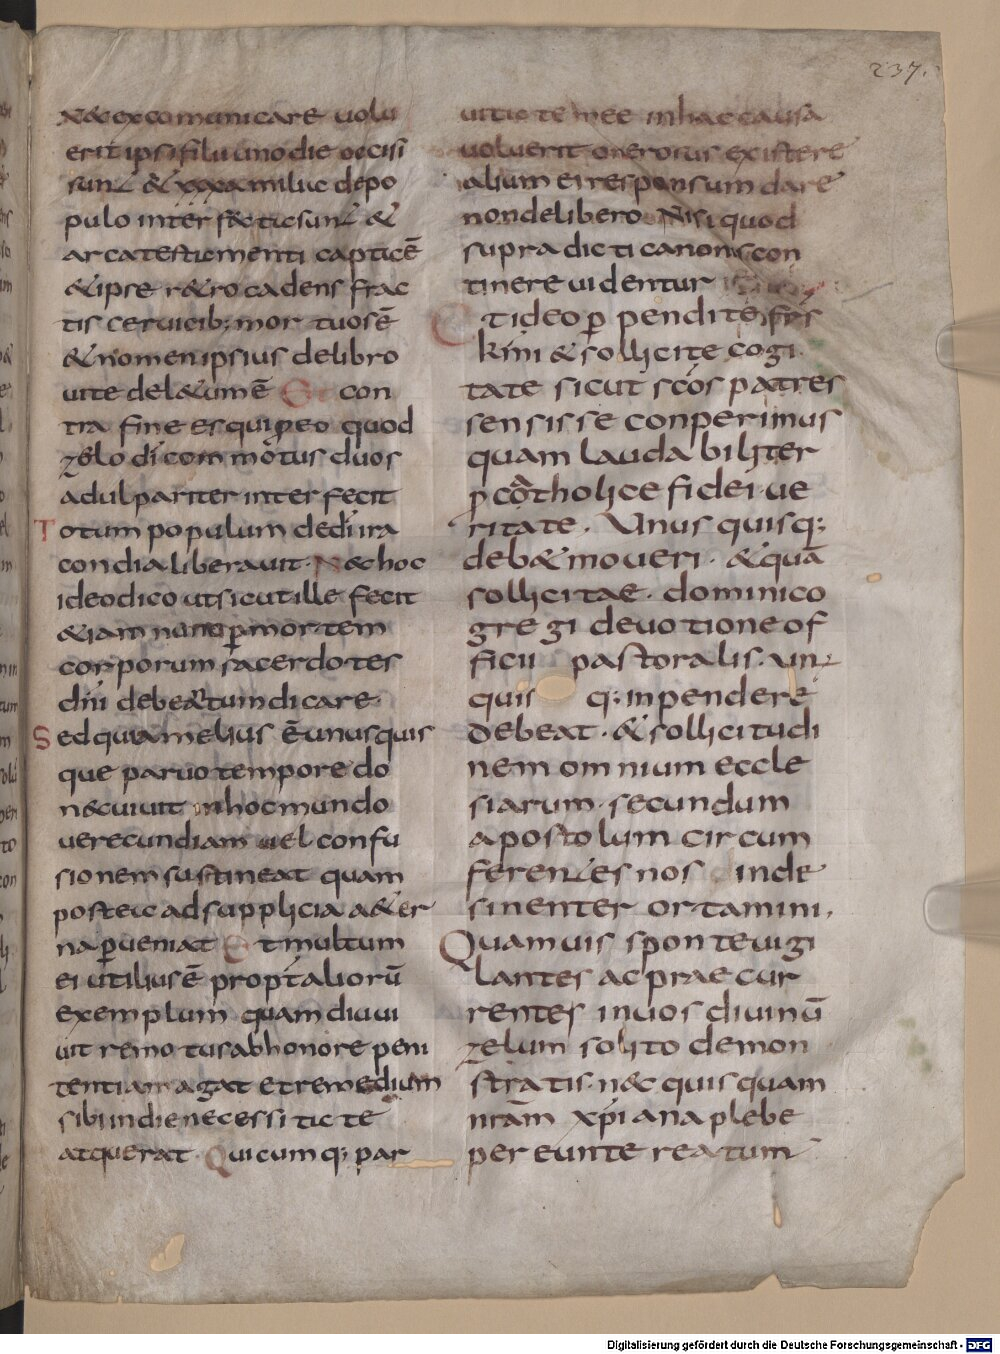 237.
N&excomunicare uolu
erit ipsi filii uno die occisi
sunt & xxxa miluc depo
pulo inter facti sunt &
arca testamenti capta ē
& ipse r&ro cadens frac
tis ceruicib; mortuos ē
& nomen ipsius delibro
uite del&um ē Sc con
tra finees qui peo quod
zelo di commotus duos
adul pariter interfecit
Totum populum dedi ira
condia liberauit. N& hoc
ideo dico ut sicut ille fecit
&iam nunc p mortem
corporum sacerdotes
dni debeant uindicare
Sed quia melius ē unusquis
que paruo tempore do
nec uiuit inhoc mundo
uerecundiam uel confu
sionem sustineat quam
postea ad supplicia a&er
na pueniat Et multum
ei utilius ē propt aliorū
exemplum quam diu ui
uit remotus abhonore peni
tentiam agat et remedium
sibi indie necessitatis
atquerat Quicumq; par
uitate mee inhac causa
uoluerit onerosus existere
alium ei responsum dare
nondelibero Nisi quod
supra dicti canonis con
tinere uidentur
Et ideo p pendite frs
kmi & sollicite cogi
tate sicut scos patres
sensisse conperimus
quam laudabiliter
p catholice fidei ue
ritate. Unus quisq;
deb& moueri. & quā
sollicitae. dominico
gregi deuotione of
ficii pastoralis. un
quis q; inpendere
debeat. & sollicitudi
nem omnium eccle
siarum. secundum
apostolum circum
ferentes nos inde
sinenter ortamini.
Quamuis sponte uigi
lantes ac prae cur
rentes inuos diuinū
zelum solito demon
stratis. nec quisquam
nram xpiana plebe
pereunte reatum
Digitalisierung gefördert durch die Deutsche Forschungsgemeinschaft - DFG